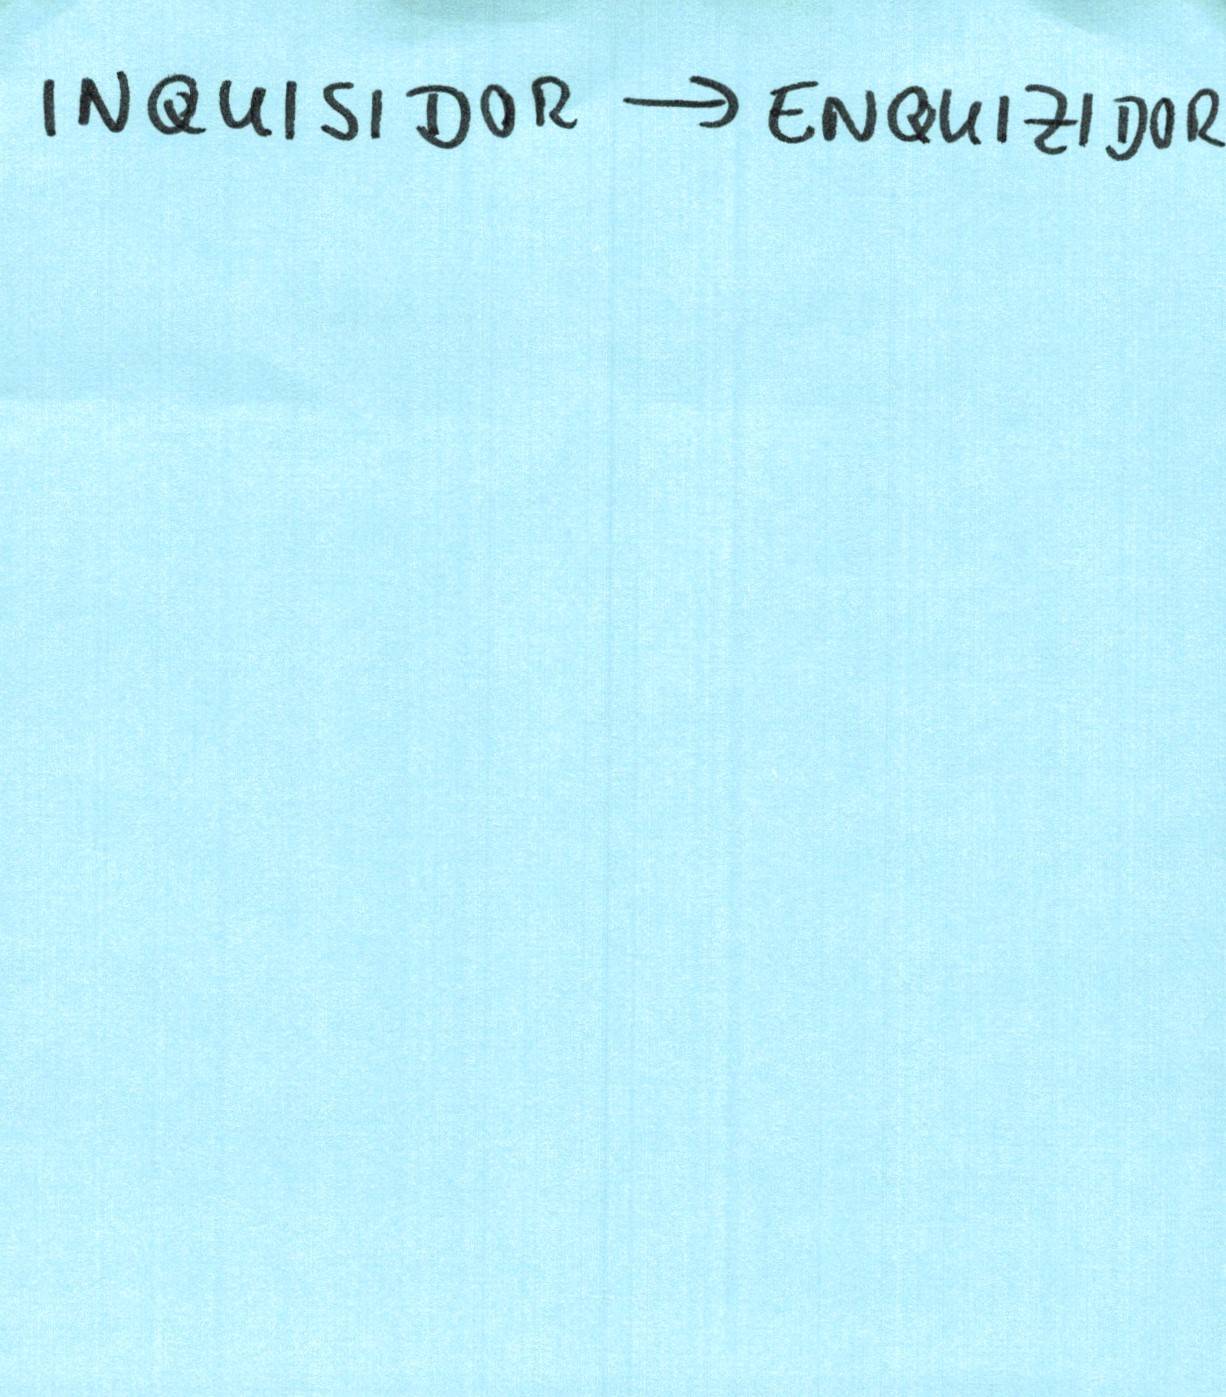 INQUISIDOR → ENQUIZIDOR